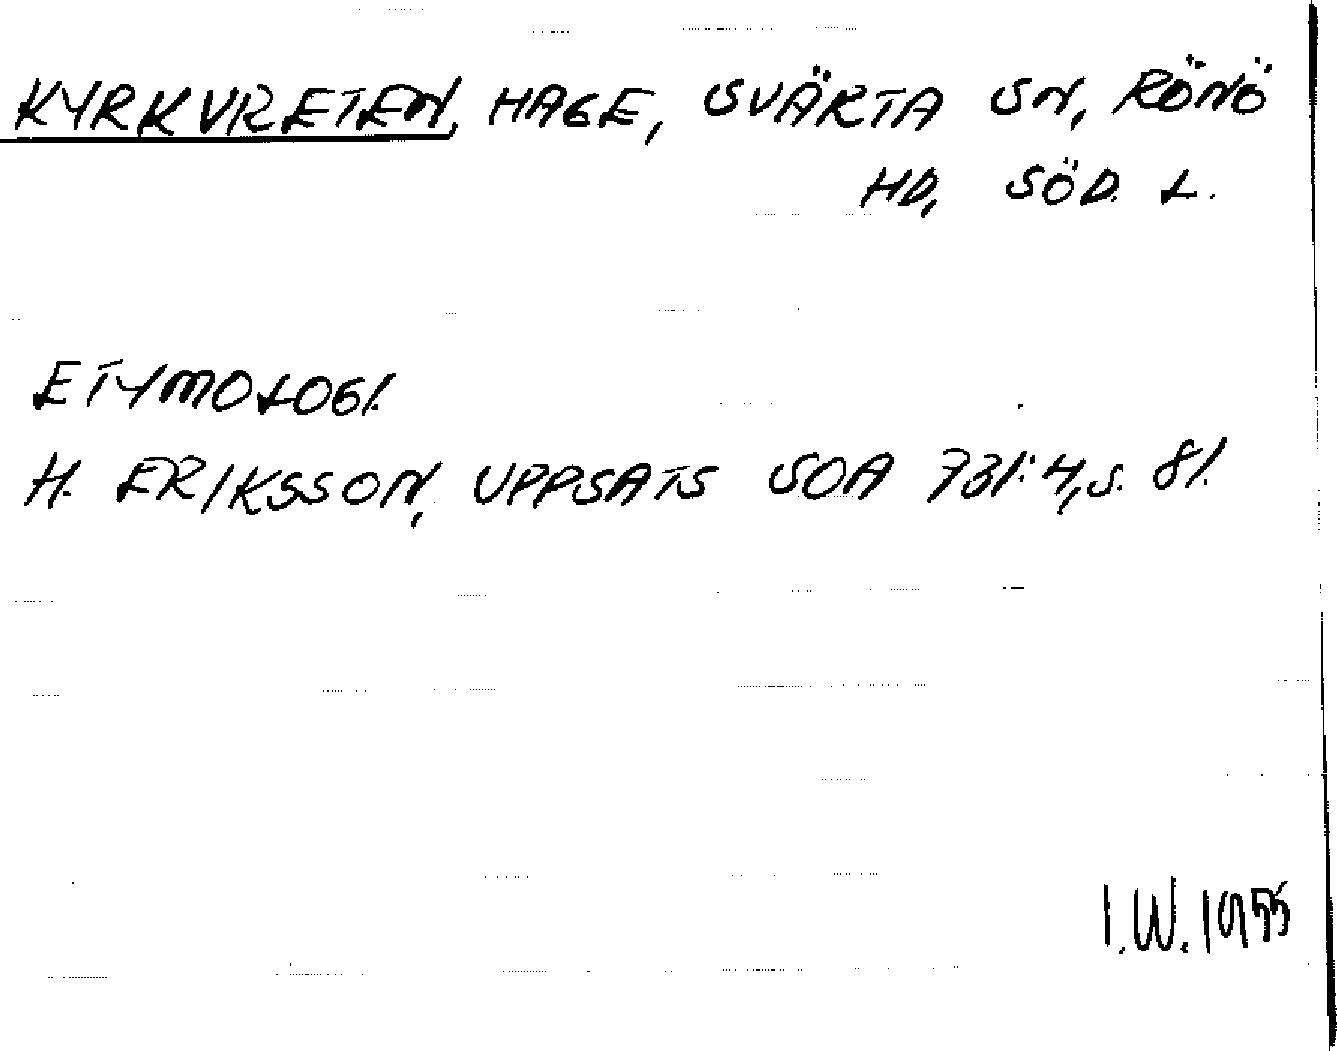 KYRKVRETEN, HAGE, SVÄRTA SN, RÖNÖ
HD, SÖD. L.
ETYMOLOGI.
H. ERIKSSON, UPPSATS SOA 731:4, S. 81.
I.W. 1955